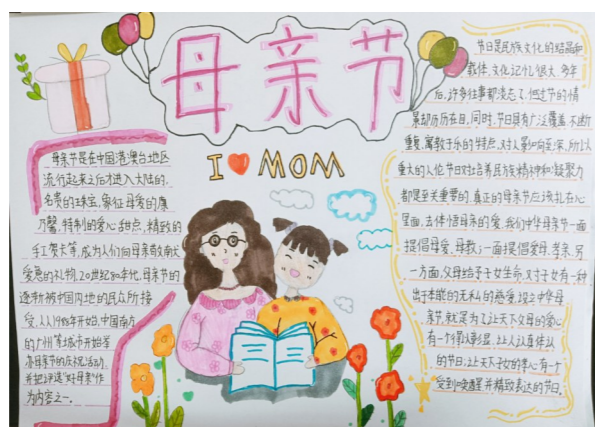 母亲节
I ❤ MOM
母亲节是在中国港澳台地区
流行起来之后才进入大陆的,
名贵的珠宝,象征母爱的康
乃馨,特制的爱心甜点,精致的
手工贺卡等,成为人们向母亲敬献
爱意的礼物。20世纪80年代,母亲节的
逐渐被中国内地的民众所接
受,从1988年开始,中国南方
的广州等城市开始举
办母亲节的庆祝活动,
并把评选"好母亲"作
为内容之一。
节日是民族文化的结晶和
载体,文化记忆很大,多年
后,许多往事都淡忘了,但过节的情
景却历历在目,同时,节日具有广泛覆盖,不断
重复,寓教于乐的特点,对人影响至深,所以
重大的人伦节日对培养民族精神和凝聚力
都是至关重要的,真正的母亲节应该扎在心
里面,去体悟母亲的爱,我们中华母亲节一面
提倡母爱,母教,一面提倡爱母,孝亲,另
一方面,父母给予子女生命,对子女有一种
出于本能的无私的慈爱,设立中华母
亲节,就是为了让天下父母的爱心
有一个第次彰显,让人认真体认
的节日;让天下子女的孝心有一个
受到唤醒并精致表达的节日。